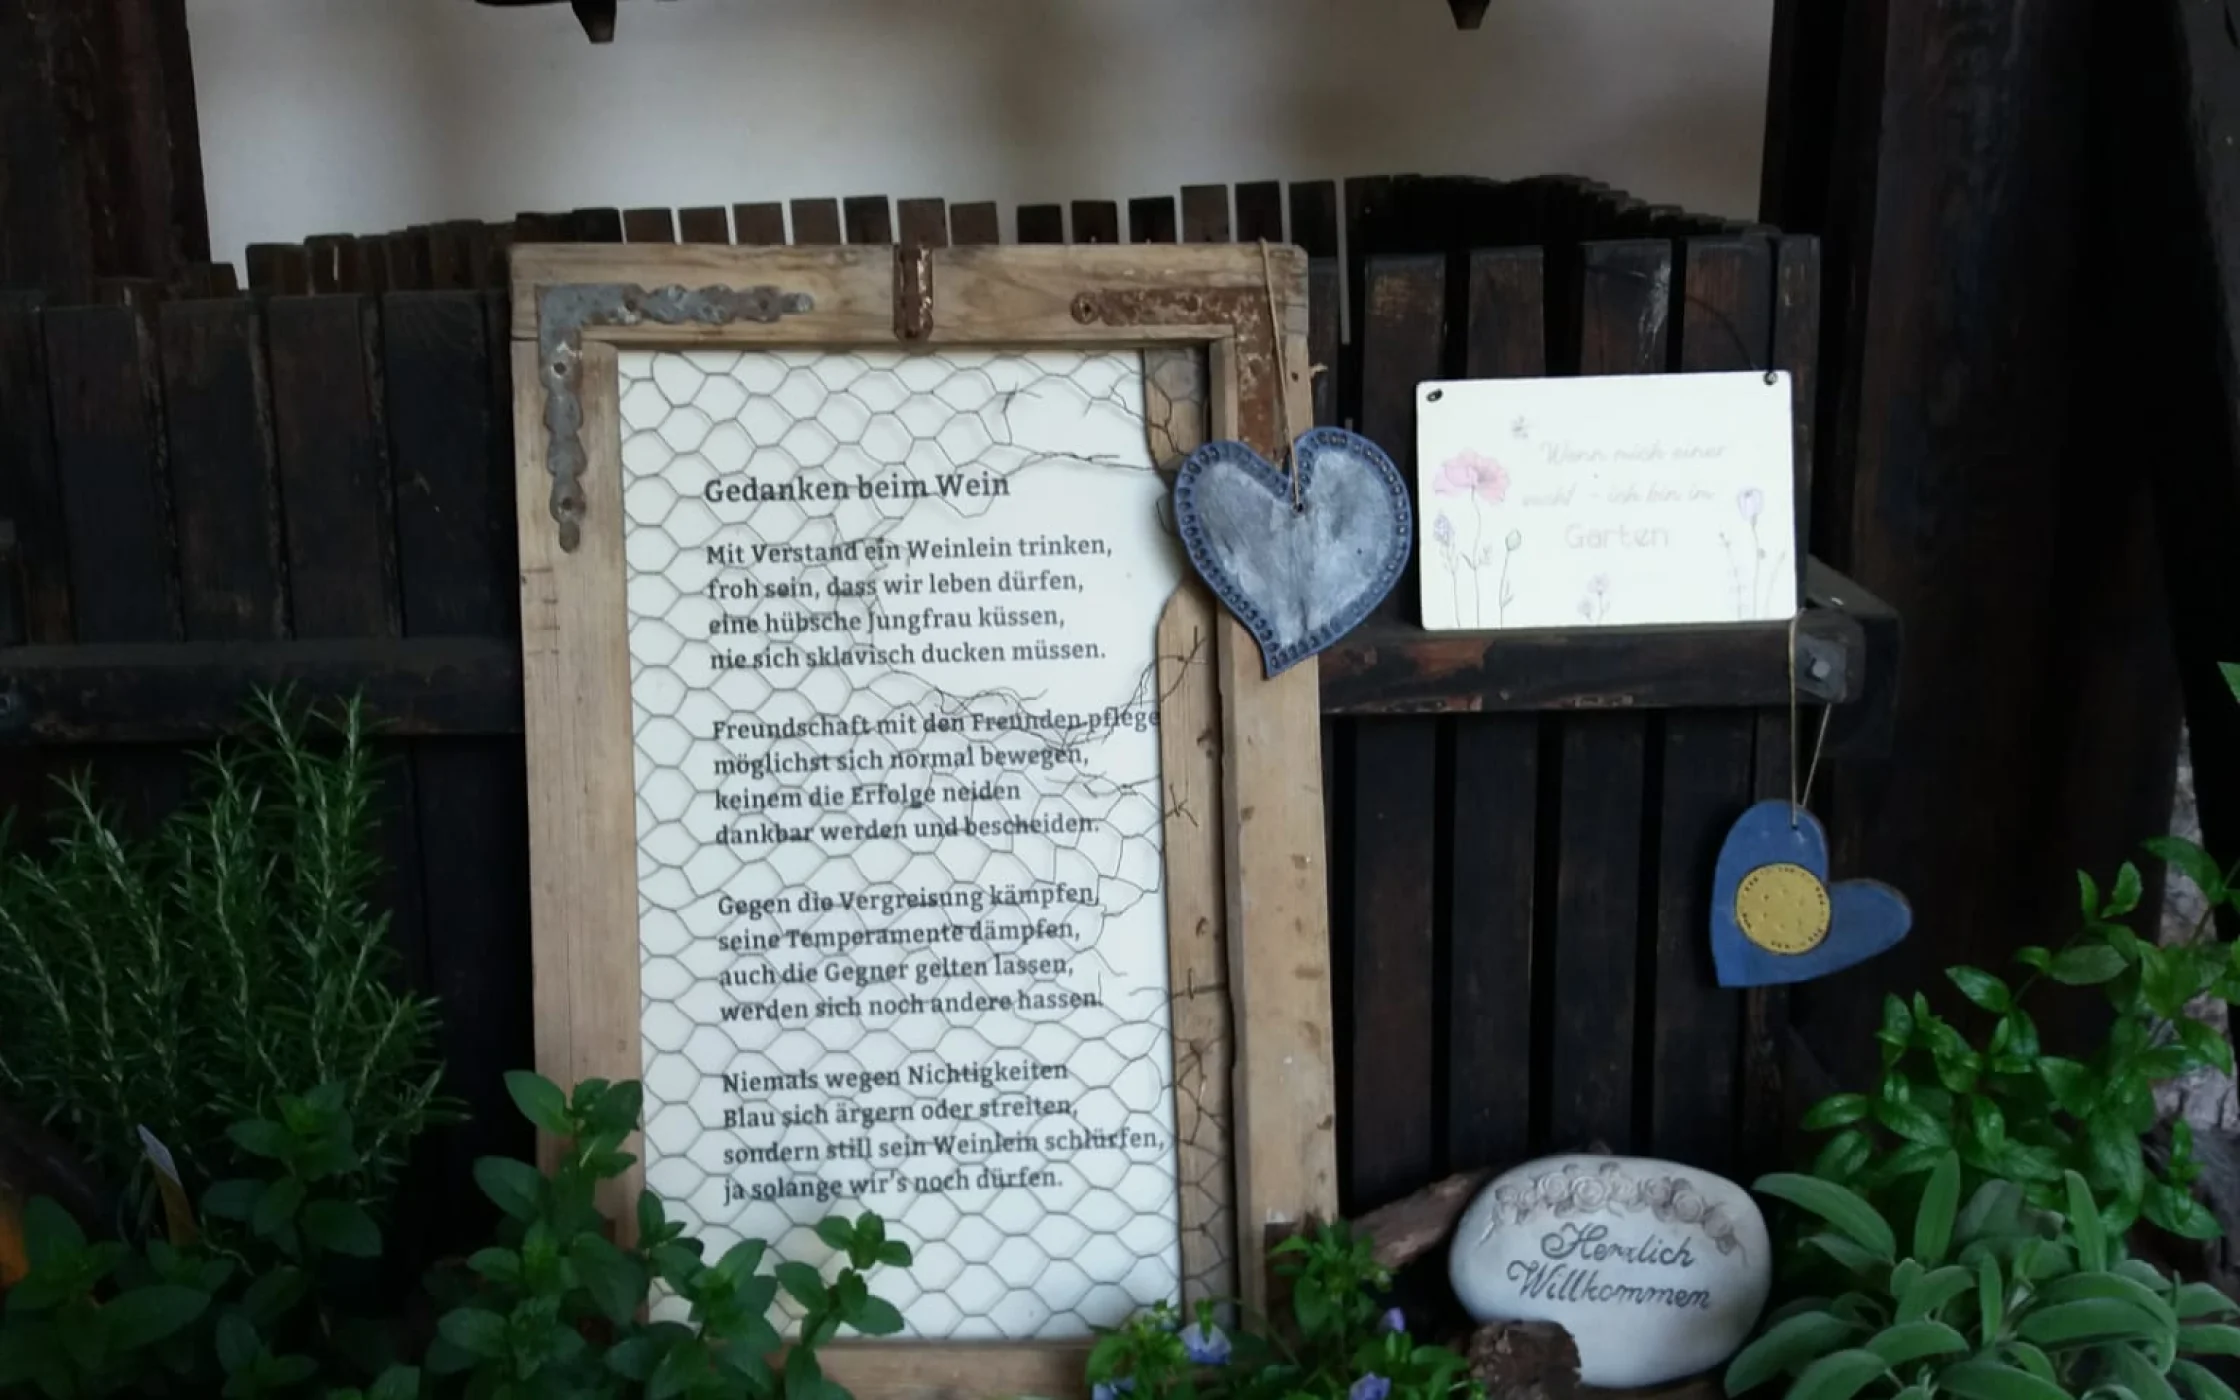 Gedanken beim Wein
Mit Verstand ein Weinlein trinken,
froh sein, dass wir leben dürfen,
eine hübsche Jungfrau küssen,
nie sich sklavisch ducken müssen.
Freundschaft mit den Freunden pflege
möglichst sich normal bewegen,
keinem die Erfolge neiden
dankbar werden und bescheiden.
Gegen die Vergreisung kämpfen,
seine Temperamente dämpfen,
auch die Gegner gelten lassen,
werden sich noch andere hassen.
Niemals wegen Nichtigkeiten
Blau sich ärgern oder streiten,
sondern still sein Weinlein schlürfen,
ja solange wir's noch dürfen.
Wenn mich einer
sucht - ich bin im
Garten
Herzlich
Willkommen